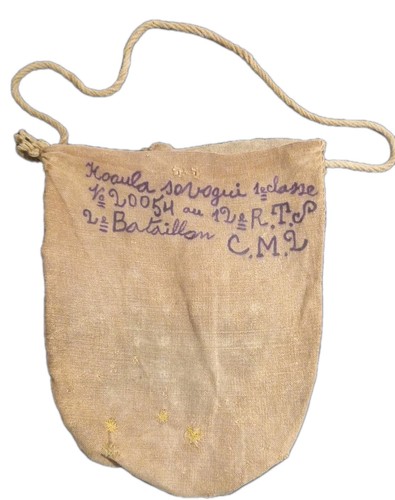 Koaula sovogui 1e classe
No 20054 au 12e R.T.S
2e Bataillon C.M.2